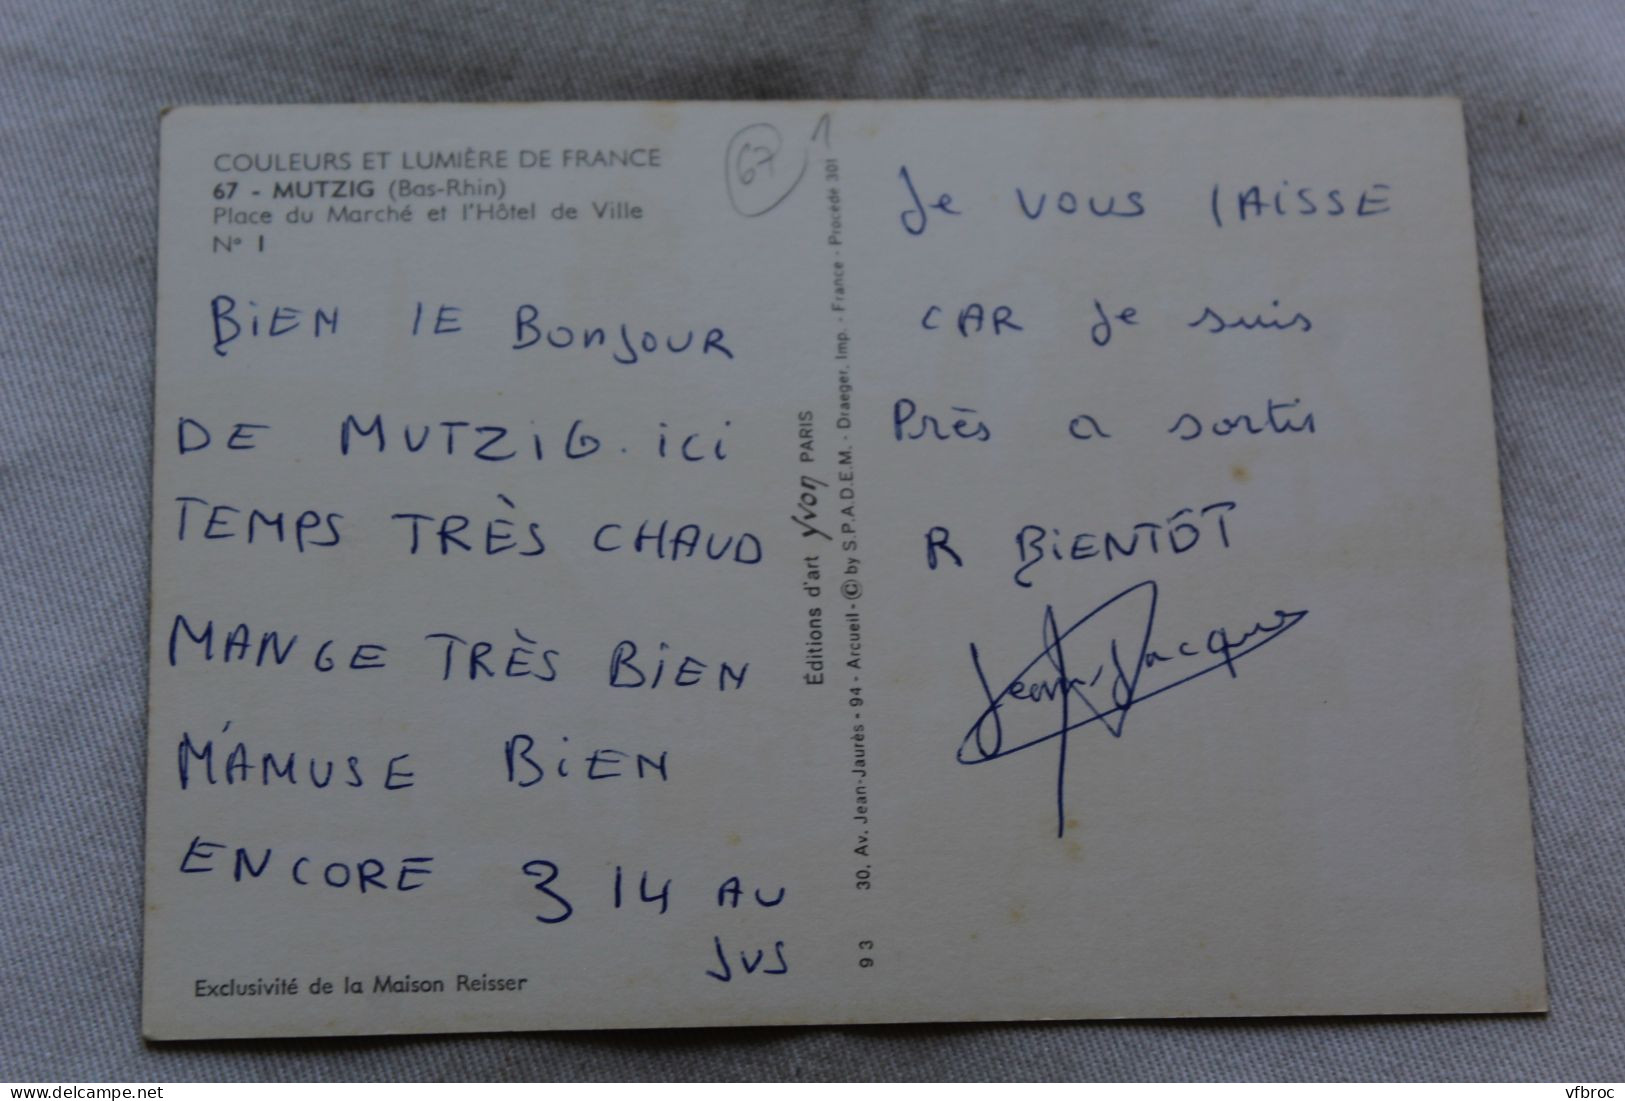 COULEURS ET LUMIÈRE DE FRANCE
67 - MUTZIG (Bas-Rhin)
Place du Marché et l'Hôtel de Ville
N° 1
67
BiEN lE BonJOUR
DE MUTZiG. ici
TEMPS TRÈS CHAUD
MANGE TRÈS BiEN
M'AMUSE BiEN
ENCORE 3 14 AU
JUS
Exclusivité de la Maison Reisser
Éditions d'art Yvon PARIS
93 30, Av. Jean-Jaurès - 94 - Arcueil - © by S.P.A.D.E.M. - Draeger, Imp. - France - Procédé 301
Je VOUS lAiSSE
CAR Je suis
Près a sortir
A BiENTÔT
Jean-Jacques
vfbroc